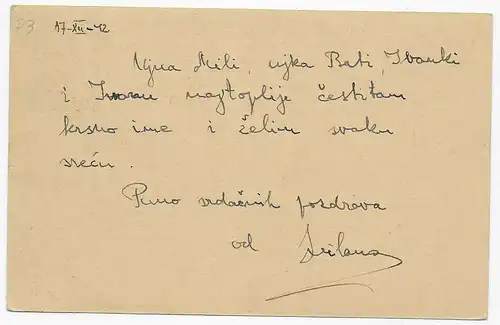 33 17-XII-42
Ujna Mili, ujka Bati, Ivanki
i najtoplije čestitam
krsno ime i želim svaku
sreću.
Puno srdačnih pozdrava
od